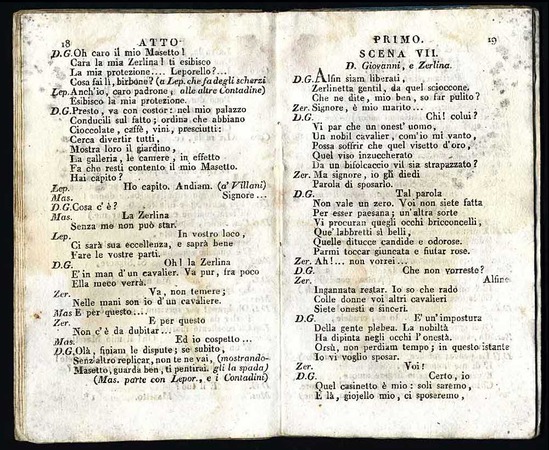 18 ATTO
D.G. Oh caro il mio Masetto!
Cara la mia Zerlina! ti esibisco
La mia protezione.... Leporello?...
Cosa fai lì, birbone? (a Lep. che fa degli scherzi
Lep. Anch'io, caro padrone, alle altre Contadine)
Esibisco la mia protezione.
D.G. Presto, va con costor: nel mio palazzo
Conducili sul fatto; ordina che abbiano
Cioccolate, caffè, vini, presciutti:
Cerca divertir tutti,
Mostra loro il giardino,
La galleria, le camere, in effetto
Fa che resti contento il mio Masetto.
Hai capito?
Lep. Ho capito. Andiam. (a' Villani)
Mas. Signore...
D.G. Cosa c'è?
Mas. La Zerlina
Senza me non può star.
Lep. In vostro loco,
Ci sarà sua eccellenza, e saprà bene
Fare le vostre parti.
D.G. Oh! la Zerlina
E' in man d'un cavalier. Va pur, fra poco
Ella meco verrà.
Zer. Va, non temere;
Nelle mani son io d'un cavaliere.
Mas E per questo...
Zer. E per questo
Non c'è da dubitar...
Mas. Ed io cospetto...
D.G. Olà, finiam le dispute; se subito,
Senz'altro replicar, non te ne vai, (mostrando-
Masetto, guarda ben, ti pentirai. gli la spada)
(Mas. parte con Lepor., e i Contadini)
PRIMO. 19
SCENA VII.
D. Giovanni, e Zerlina.
D.G. Alfin siam liberati,
Zerlinetta gentil, da quel scioccone.
Che ne dite, mio ben, so far pulito?
Zer. Signore, è mio marito...
D.G. Chi! colui?
Vi par che un onest' uomo,
Un nobil cavalier, com'io mi vanto,
Possa soffrir che quel visetto d'oro,
Quel viso inzuccherato
Da un bifolcaccio vil sia strapazzato?
Zer. Ma signore, io gli diedi
Parola di sposarlo.
D.G. Tal parola
Non vale un zero. Voi non siete fatta
Per esser paesana; un'altra sorte
Vi procuran quegli occhi bricconcelli,
Que' labbretti sì belli,
Quelle ditucce candide e odorose.
Parmi toccar giuncata e fiutar rose.
Zer. Ah!... non vorrei...
D.G. Che non vorreste?
Zer. Alfine
Ingannata restar. Io so che rado
Colle donne voi altri cavalieri
Siete onesti e sinceri.
D.G. E' un'impostura
Della gente plebea. La nobiltà
Ha dipinta negli occhi l'onestà.
Orsù, non perdiam tempo; in questo istante
Io vi voglio sposar.
Zer. Voi!
D.G. Certo, io
Quel casinetto è mio: soli saremo,
E là, giojello mio, ci sposeremo,